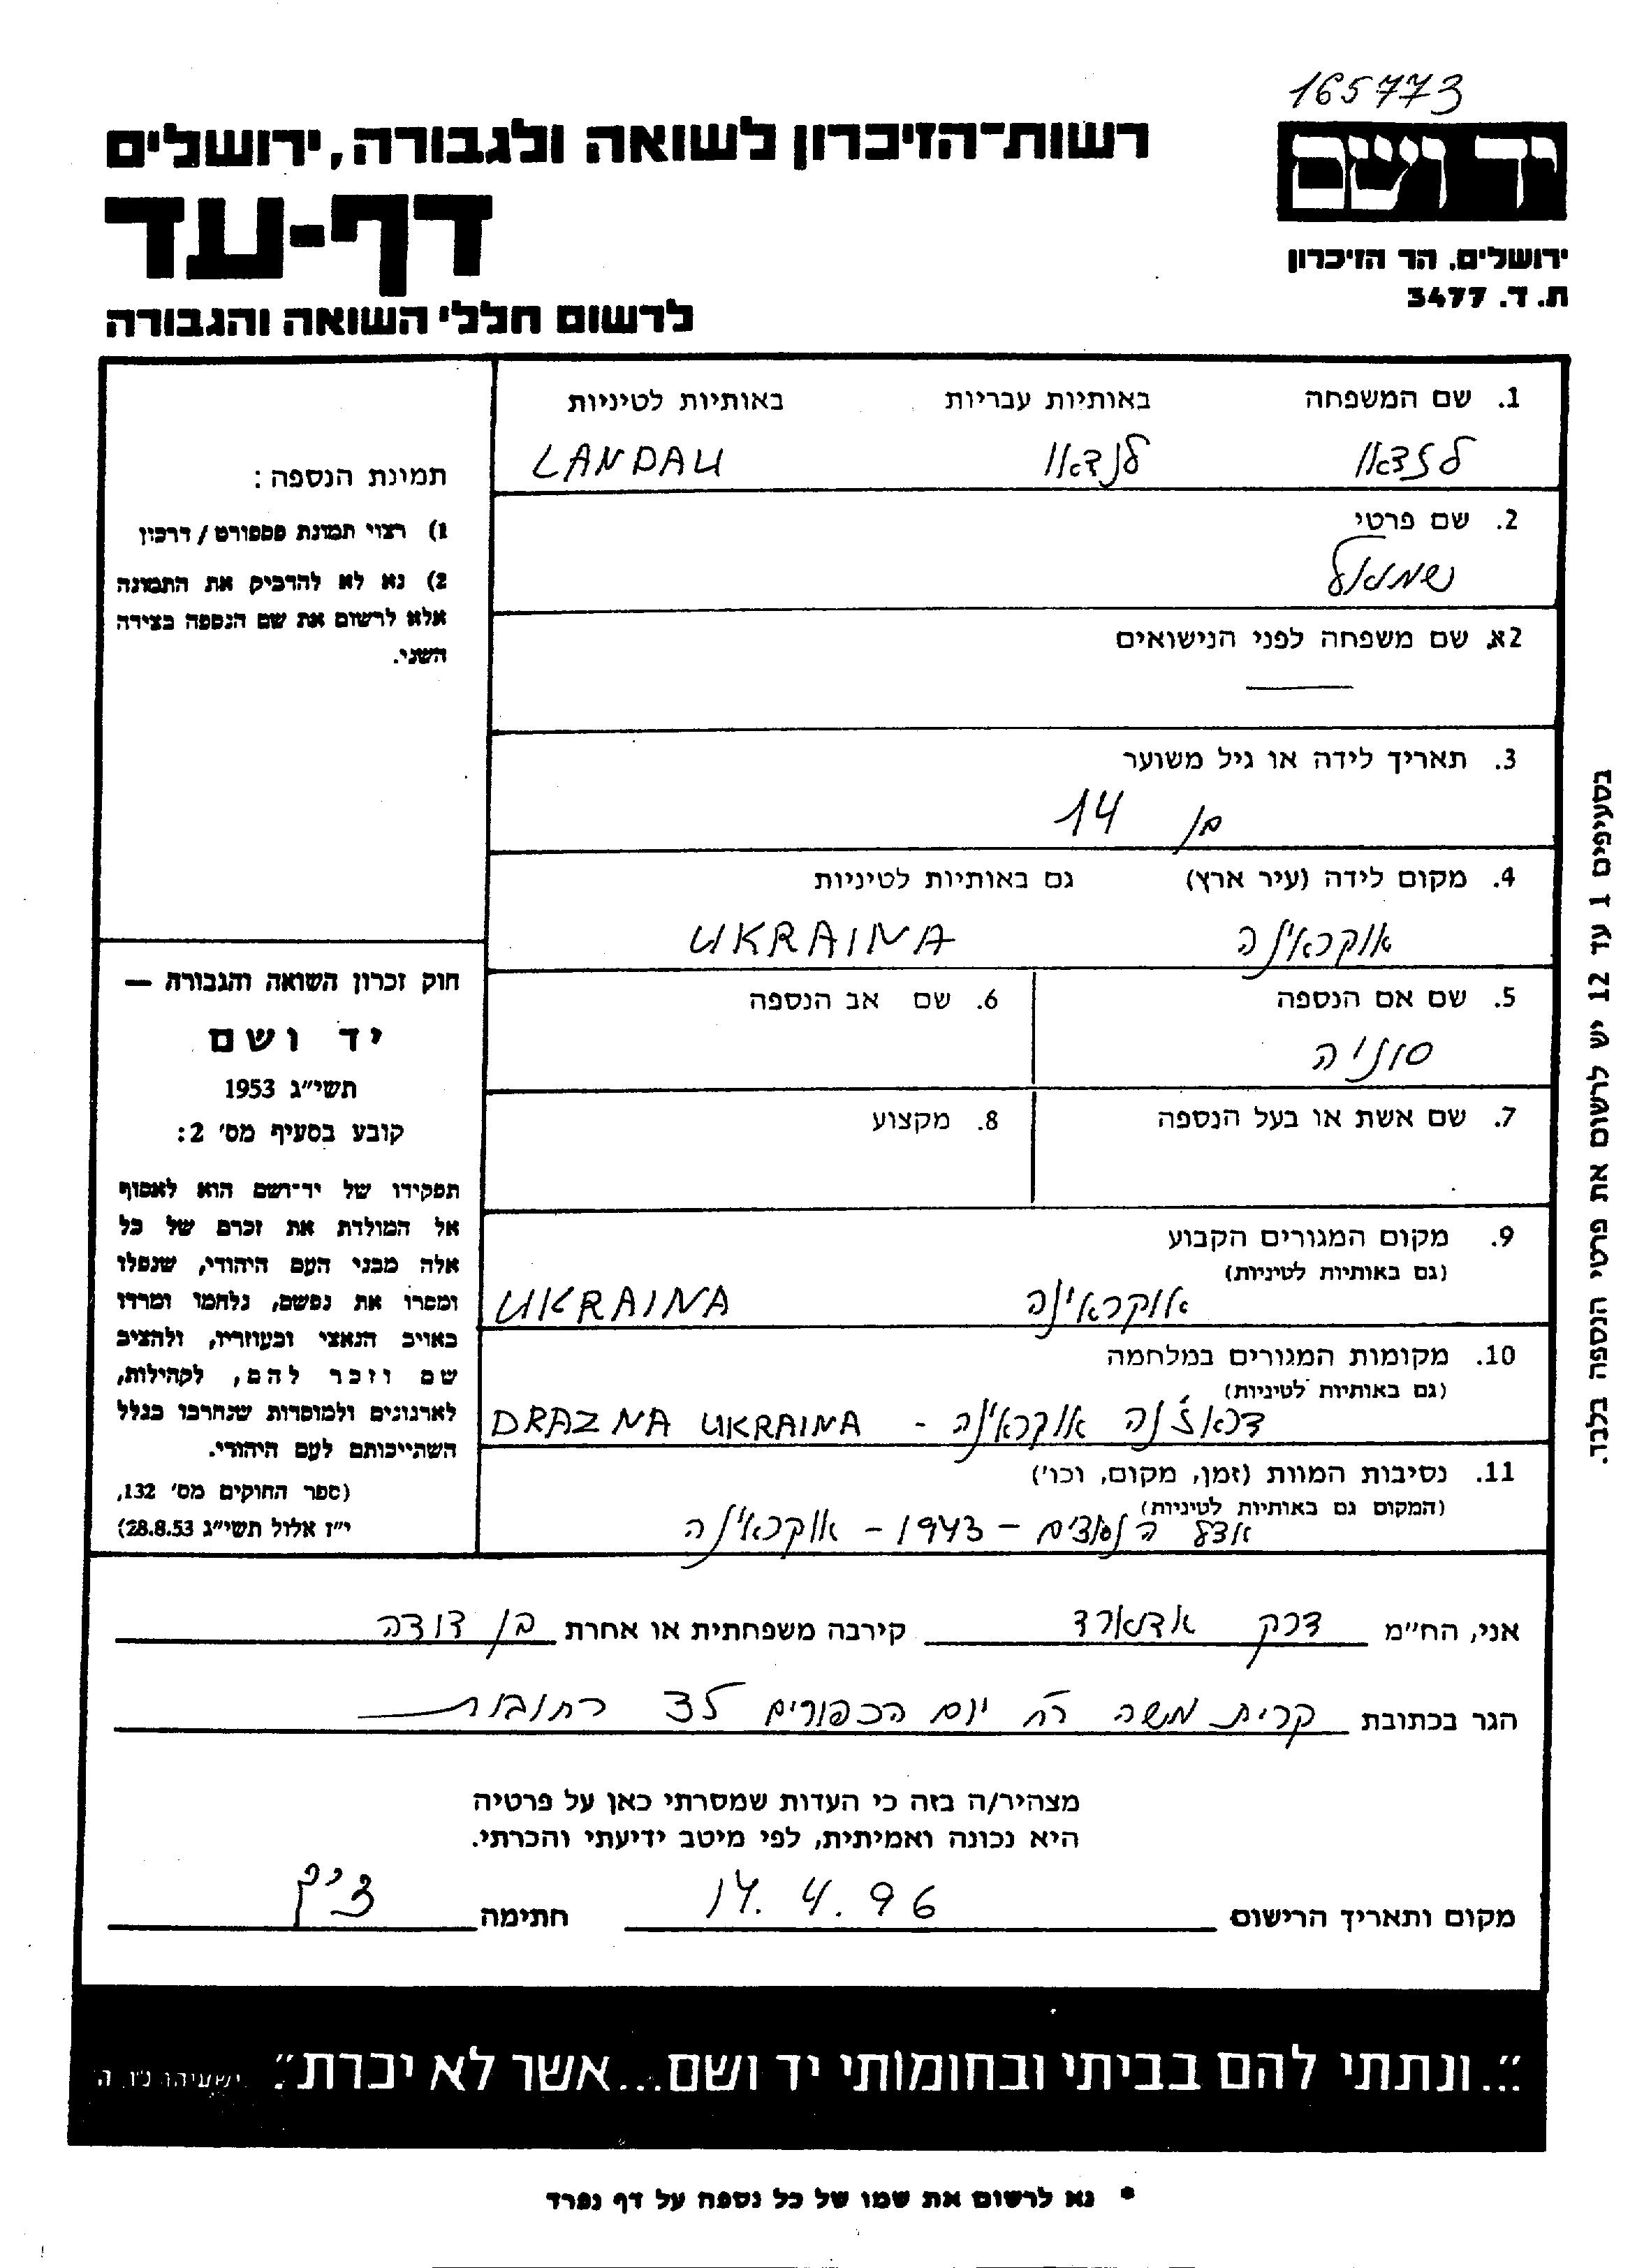 165773
רשות־הזיכרון לשואה ולגבורה, ירושלים
יד ושם
דף-עד
ירושלים, הר הזיכרון
ת. ד. 3477
לרשום חללי השואה והגבורה
1. שם המשפחה באותיות עבריות באותיות לטיניות
לנדאו לנדאו LANDAU
2. שם פרטי
שמואל
2א. שם משפחה לפני הנישואים
3. תאריך לידה או גיל משוער
בן 14
4. מקום לידה (עיר ארץ) גם באותיות לטיניות
אוקראינה UKRAINA
5. שם אם הנספה 6. שם אב הנספה
סוניה
7. שם אשת או בעל הנספה 8. מקצוע
9. מקום המגורים הקבוע
(גם באותיות לטיניות)
אוקראינה UKRAINA
10. מקומות המגורים במלחמה
(גם באותיות לטיניות)
דראז'נה אוקראינה - DRAZNA UKRAINA
11. נסיבות המוות (זמן, מקום, וכו')
(המקום גם באותיות לטיניות)
הנאצים - 1943 - אוקראינה
תמונת הנספה:
1) רצוי תמונת פספורט / דרכון
2) נא לא להדביק את התמונה
אלא לרשום את שם הנספה בצידה
השני.
חוק זכרון השואה והגבורה —
יד ושם
תשי"ג 1953
קובע בסעיף מס' 2:
תפקידו של יד־ושם הוא לאסוף
אל המולדת את זכרם של כל
אלה מבני העם היהודי, שנפלו
ומסרו את נפשם, נלחמו ומרדו
באויב הנאצי ובעוזריו, ולהציב
שם וזכר להם, לקהילות,
לארגונים ולמוסדות שנחרבו בגלל
השתייכותם לעם היהודי.
(ספר החוקים מס' 132,
י"ז אלול תשי"ג 28.8.53)
בסעיפים 1 עד 12 יש לרשום את פרטי הנספה בלבד.
אני, הח"מ דרק אדוארד קירבה משפחתית או אחרת בן דודה
הגר בכתובת קרית משה רח' יום הכפורים רחובות
מצהיר/ה בזה כי העדות שמסרתי כאן על פרטיה
היא נכונה ואמיתית, לפי מיטב ידיעתי והכרתי.
מקום ותאריך הרישום 14.4.96 חתימה
"...ונתתי להם בביתי ובחומותי יד ושם...אשר לא יכרת". ישעיהו נ"ו, ה'
* נא לרשום את שמו של כל נספה על דף נפרד